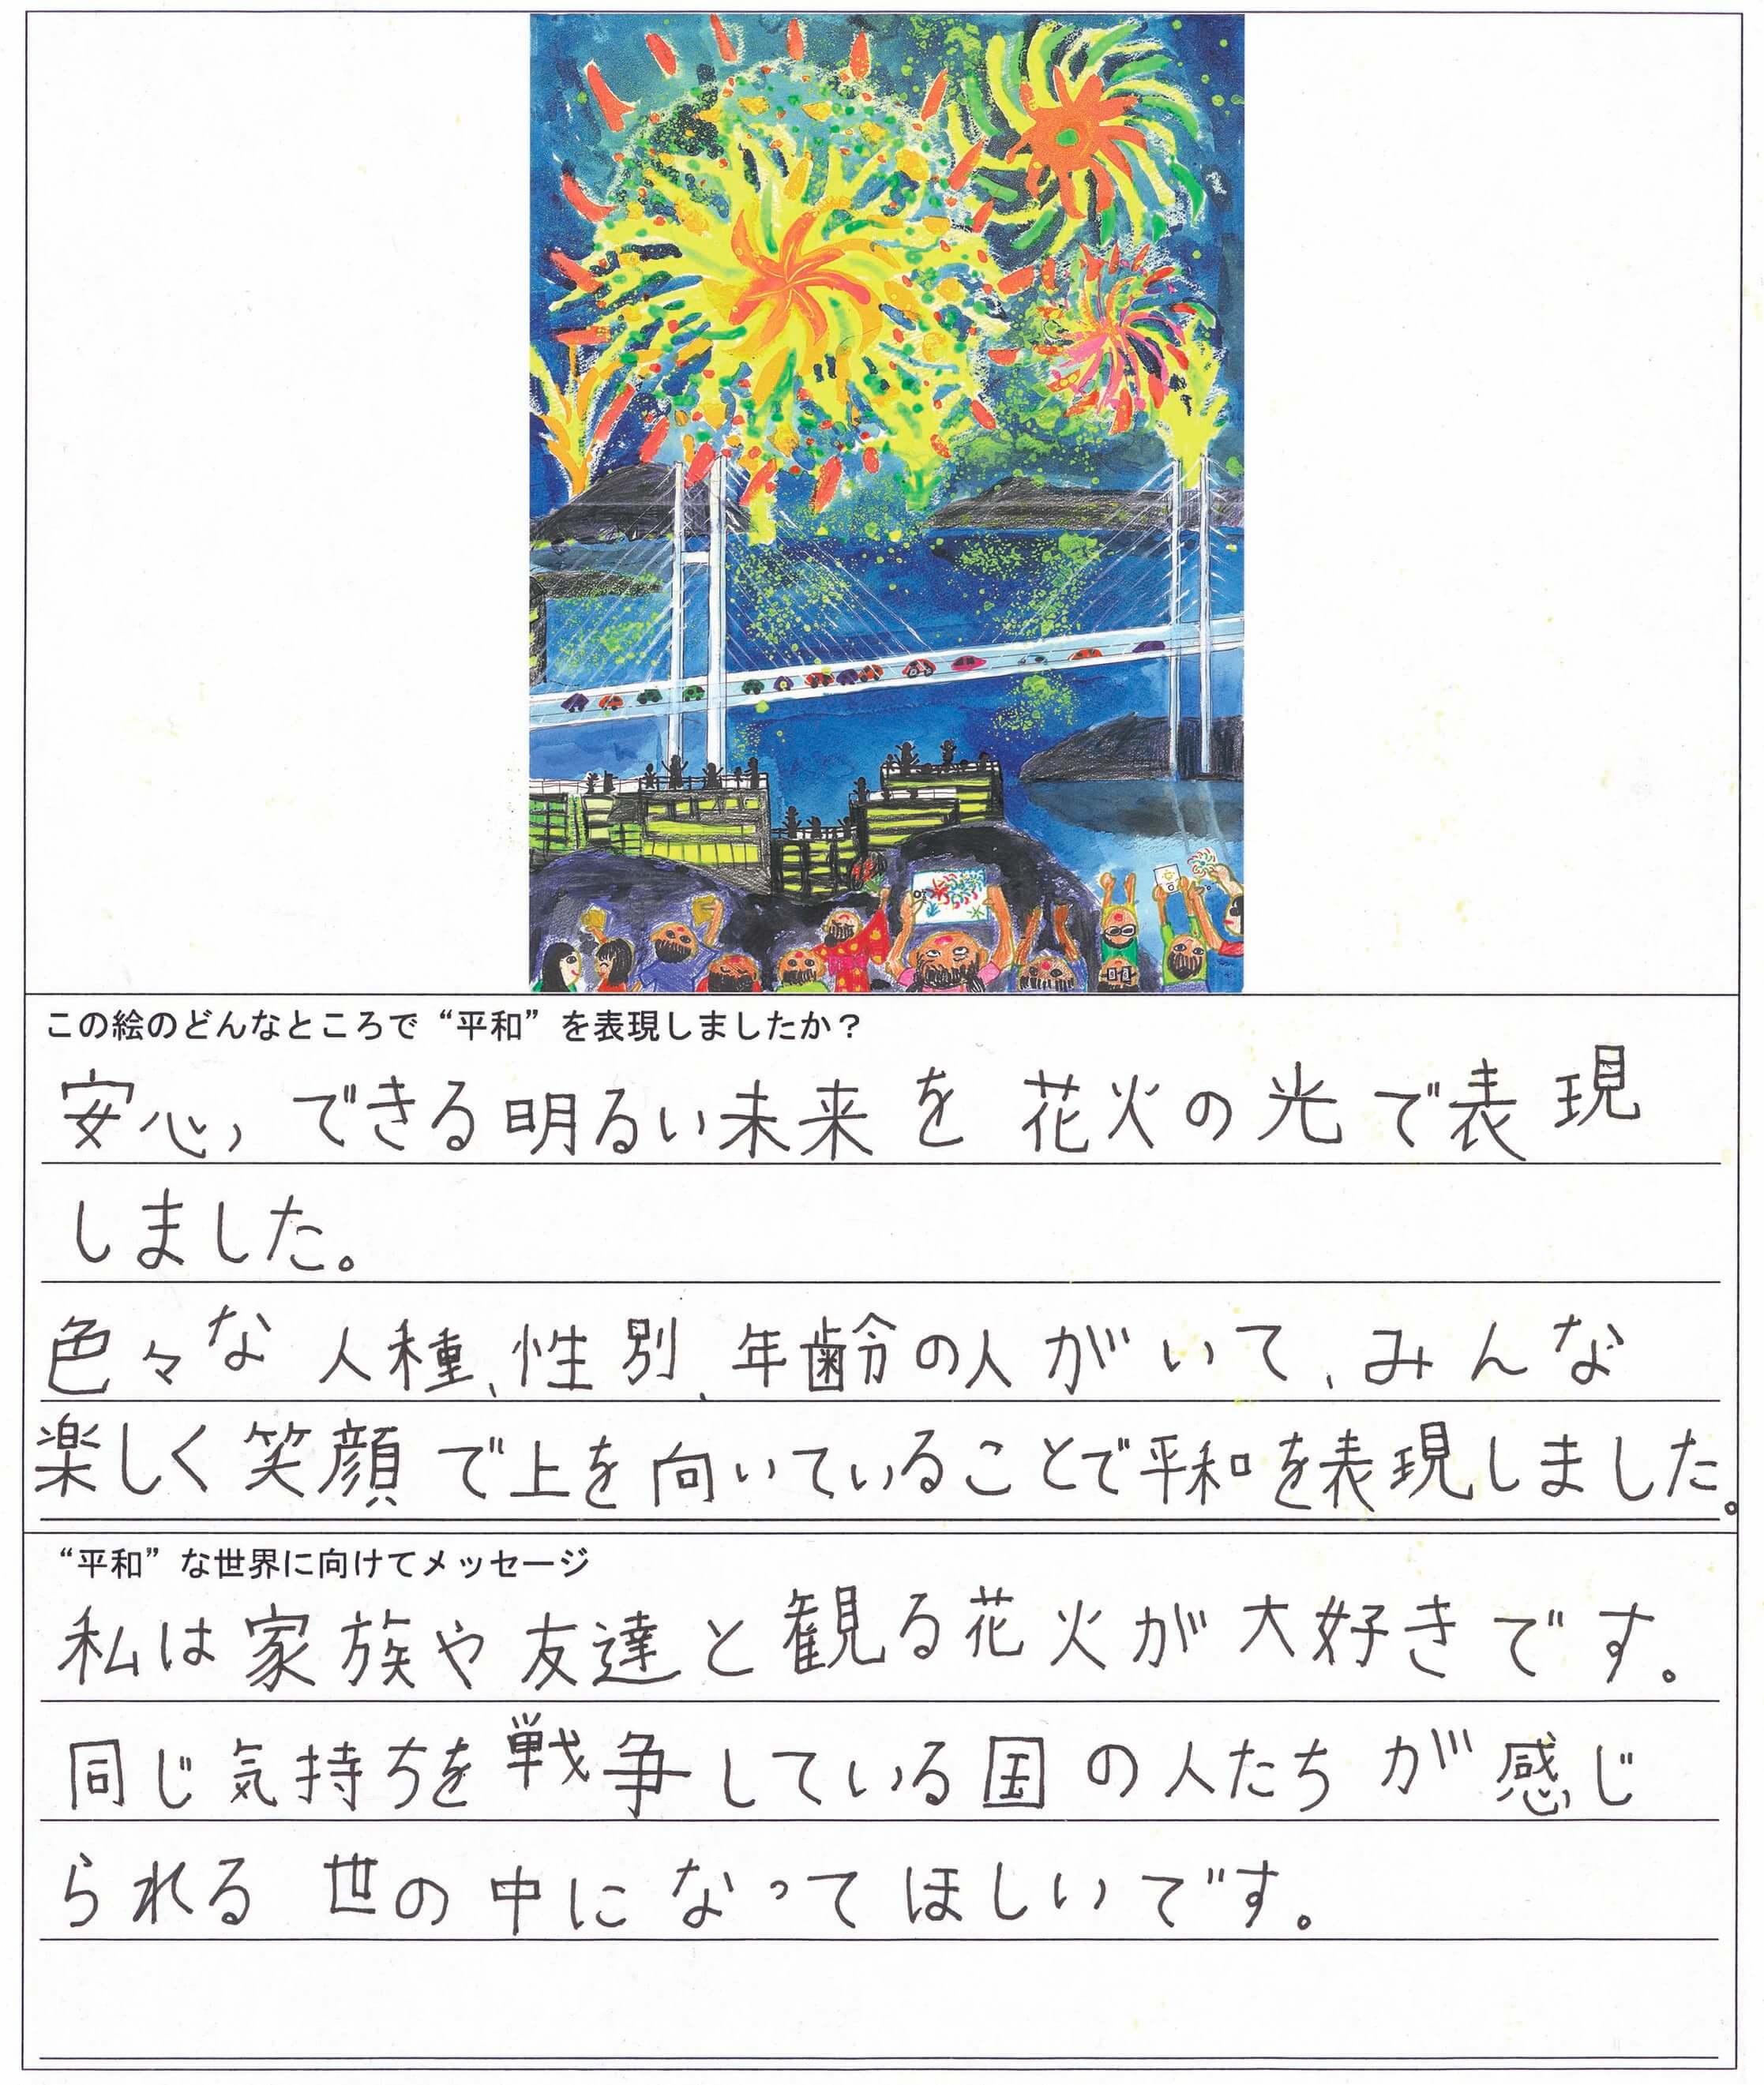 この絵のどんなところで“平和”を表現しましたか？
安心できる明るい未来を花火の光で表現
しました。
色々な人種、性別、年齢の人がいて、みんな
楽しく笑顔で上を向いていることで平和を表現しました。
“平和”な世界に向けてメッセージ
私は家族や友達と観る花火が大好きです。
同じ気持ちを戦争している国の人たちが感じ
られる世の中になってほしいです。